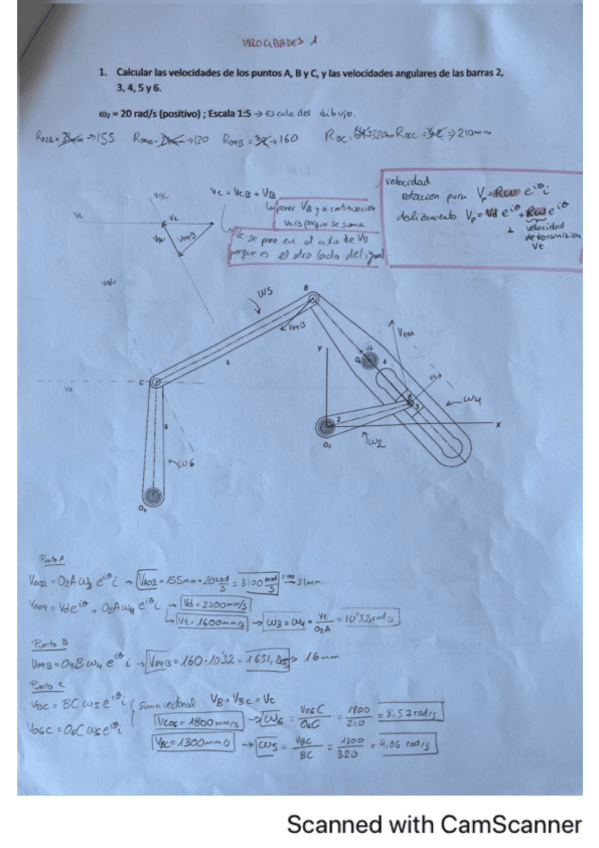 VELOCIDADES 1
1. Calcular las velocidades de los puntos A, B y C, y las velocidades angulares de las barras 2,
3, 4, 5 y 6.
ω₂ = 20 rad/s (positivo) ; Escala 1:5 → escala del dibujo.
→155 →120 →160 →210mm
Vc = VCB + VB
poner VB y a continuación
porque se suma
Vc se pone en el otro lado de VB
porque es el otro lado del igual
velocidad
rotación pura Vp = Rω e^iθ i
deslizamiento Vp = Vd e^iθ + Rω e^iθ i
velocidad
de transmisión
Vt
Vc
ω5
B
VO4B
VO2A
C
Y
O₄
4
5
6
A
3
2
ω4
X
O₂
ω2
ω6
O₆
Punto A
VAO2 = O2A ω2 e^iθ i → VAO2 = 155mm · 20 rad/s = 3100 mm/s → 31mm
VAO4 = Vd e^iθ + O2A ω4 e^iθ i → Vd = 2300mm/s
Vt = 1600mm/s → ω3 = ω4 = Vt/O2A = 10'32 rad/s
Punto B
VO4B = O4B ω4 e^iθ i → VO4B = 160 · 10'32 = 1651, → 16mm
Punto C
VBC = BC ω5 e^iθ i
Suma vectorial VB + VBC = VC
VO6C = O6C ω6 e^iθ i
VCO6 = 1800mm/s → ω6 = VO6C/O6C = 1800/210 = 8,57 rad/s
VBC = 1300mm/s → ω5 = VBC/BC = 1300/320 = 4,06 rad/s
Scanned with CamScanner